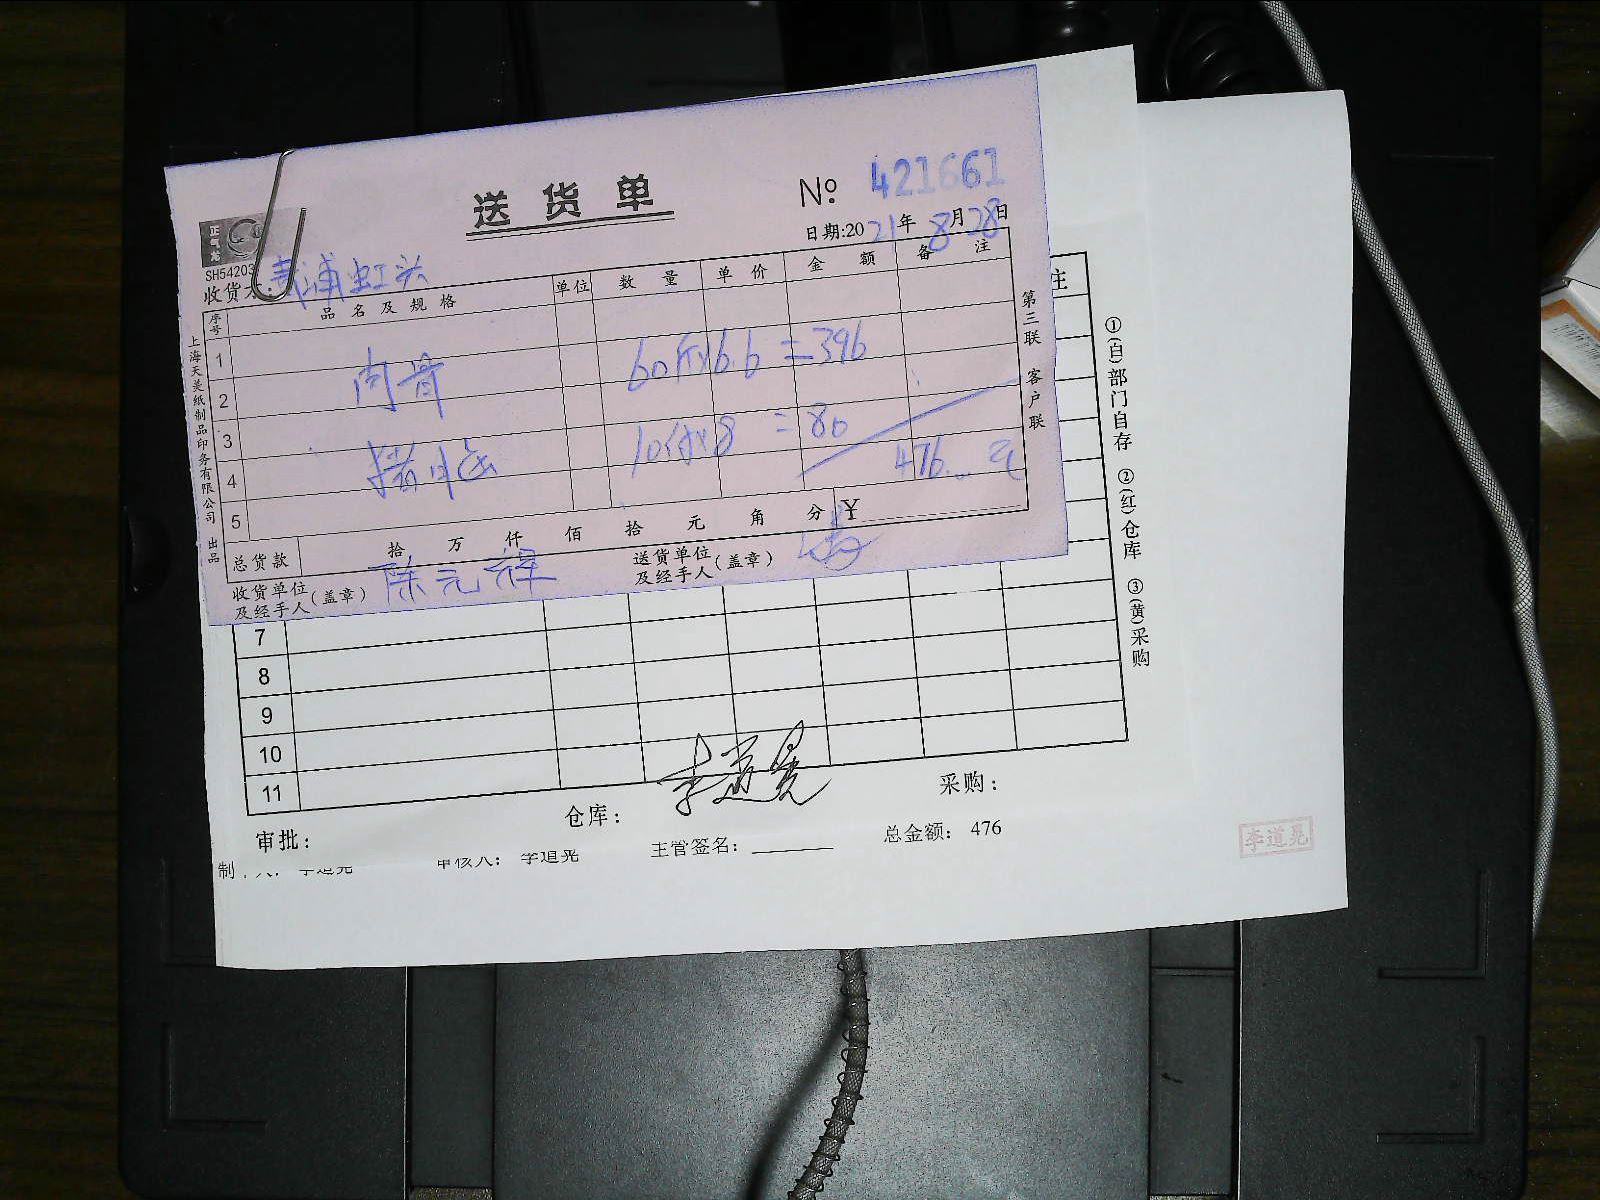 送货单
№ 421661
日期:2021年8月28日
正气鸟
SH54203
收货
虹头
序号 品名及规格 单位 数量 单价 金额 备注
1
肉骨 60斤×6.6=396
2
3
10斤×8=80
4
476
元
5
总货款 拾 万 仟 佰 拾 元 角 分 ¥
收货单位及经手人(盖章) 陈元祥
送货单位及经手人(盖章)
上海天美纸制品印务有限公司 出品
第三联 客户联
注
①(白)部门自存 ②(红)仓库 ③(黄)采购
7
8
9
10
11
审批:
仓库: 李道晃
采购:
制 人: 李道晃
审核人: 李道晃
主管签名:
总金额: 476
李道晃